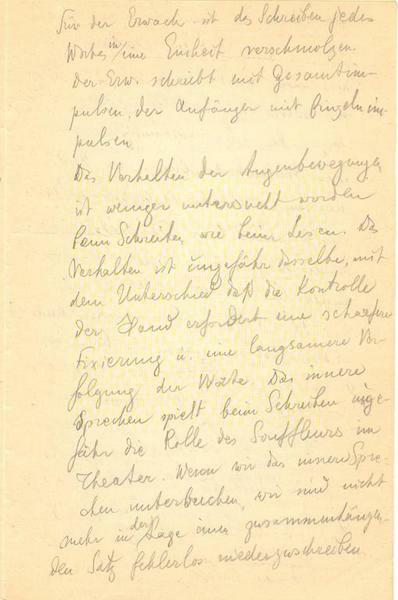 Für der Erwach. ist des Schreiben jedes
Wortes in eine Einheit verschmolzen.
Der Erw. schreibt mit Gesamtim-
pulsen, der Anfänger mit Einzelnim-
pulsen.
Das Verhalten der Augenbewegungen
ist weniger untersucht worden
beim Schreiben, wie beim Lesen. Das
Verhalten ist ungefähr dasselbe, mit
dem Unterschied daß die Kontrolle
der Hand erfordert eine schaerfere
Fixierung u. eine langsamere Ver-
folgung der Worte. Das innere
Sprechen spielt beim Schreiben unge-
fähr die Rolle des Souffleurs im
Theater. Wenn wir das innere Spre-
chen unterbrechen, wir sind nicht
mehr in der Lage einen zusammenhängen-
den Satz fehlerlos niederzuschreiben.